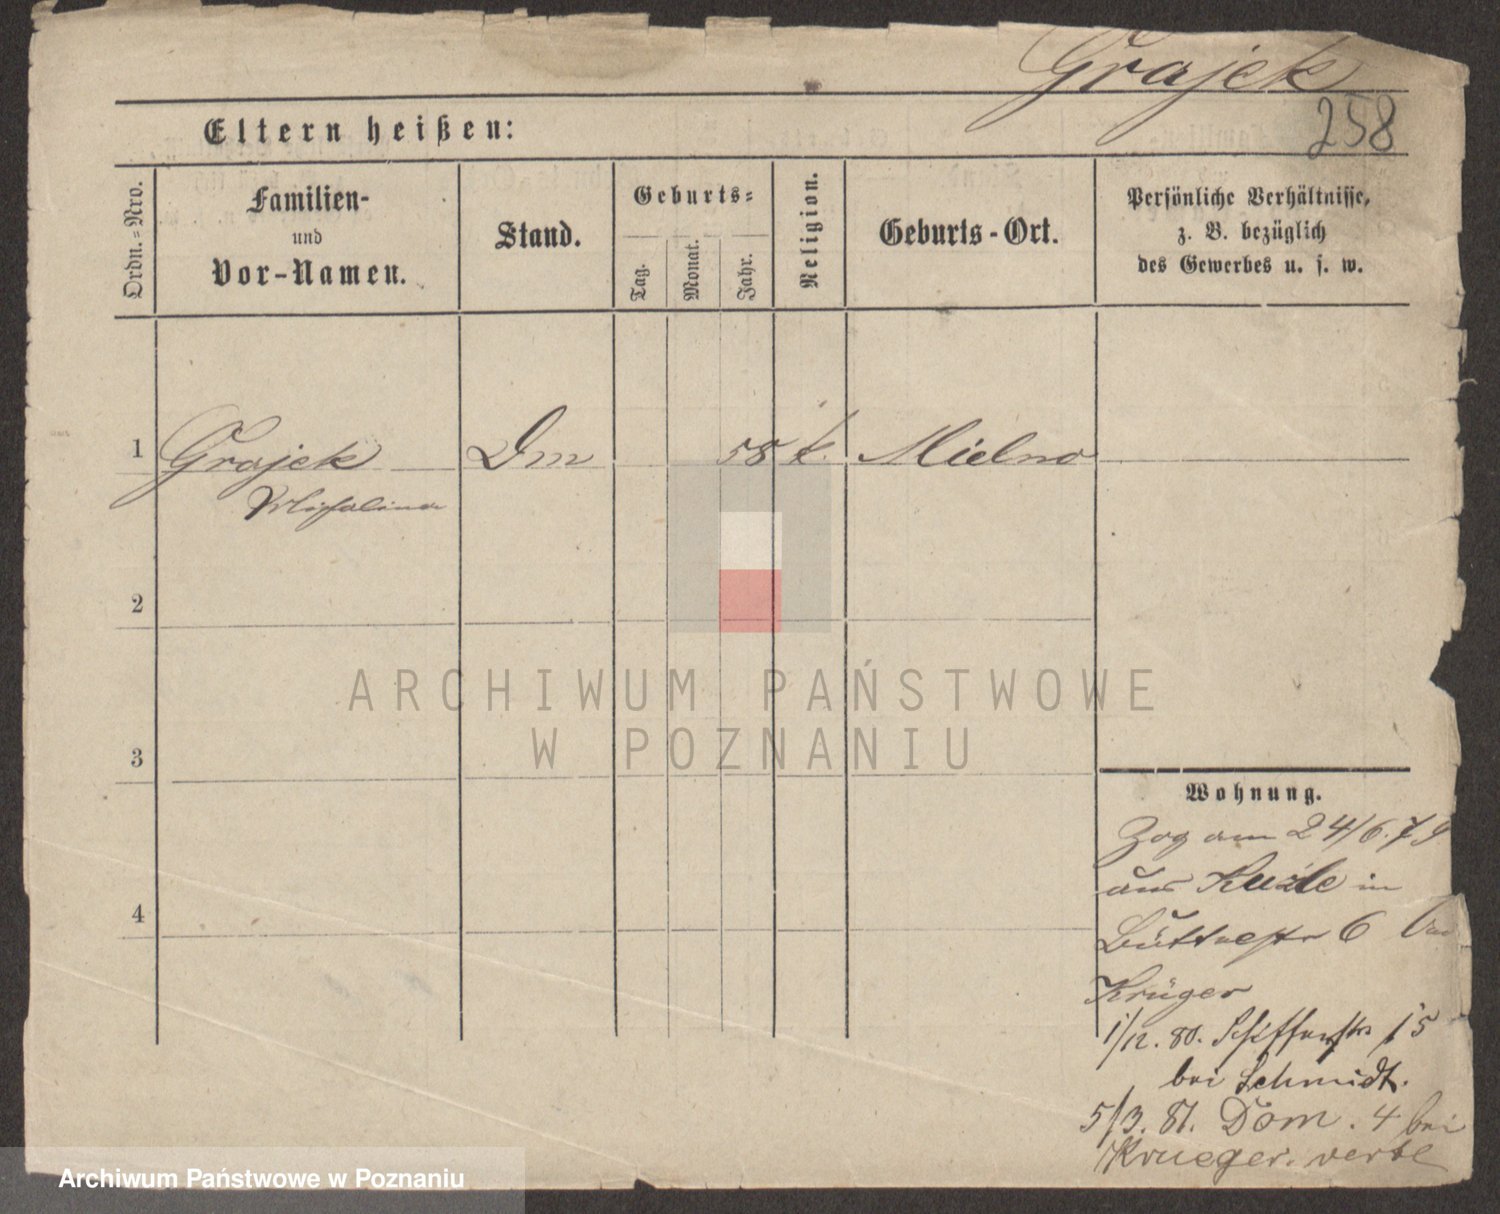 Grajek
258
Eltern heißen:
Ordn.-Nro.
Familien-
und
Vor-Namen.
Stand.
Geburts-
Tag.
Monat.
Jahr.
Religion.
Geburts-Ort.
Persönliche Verhältnisse,
z. B. bezüglich
des Gewerbes u. s. w.
1 Grajek Dm 58 k. Mielno
Michalina
2
3
4
Wohnung.
Zog am 24/6.79
aus in
Büttnestr 6
Krüger
1/12. 80. Schifferstr 15
bei Schmidt.
5/3. 81. Dom. 4 bei
Krueger.
ARCHIWUM PAŃSTWOWE
W POZNANIU
Archiwum Państwowe w Poznaniu